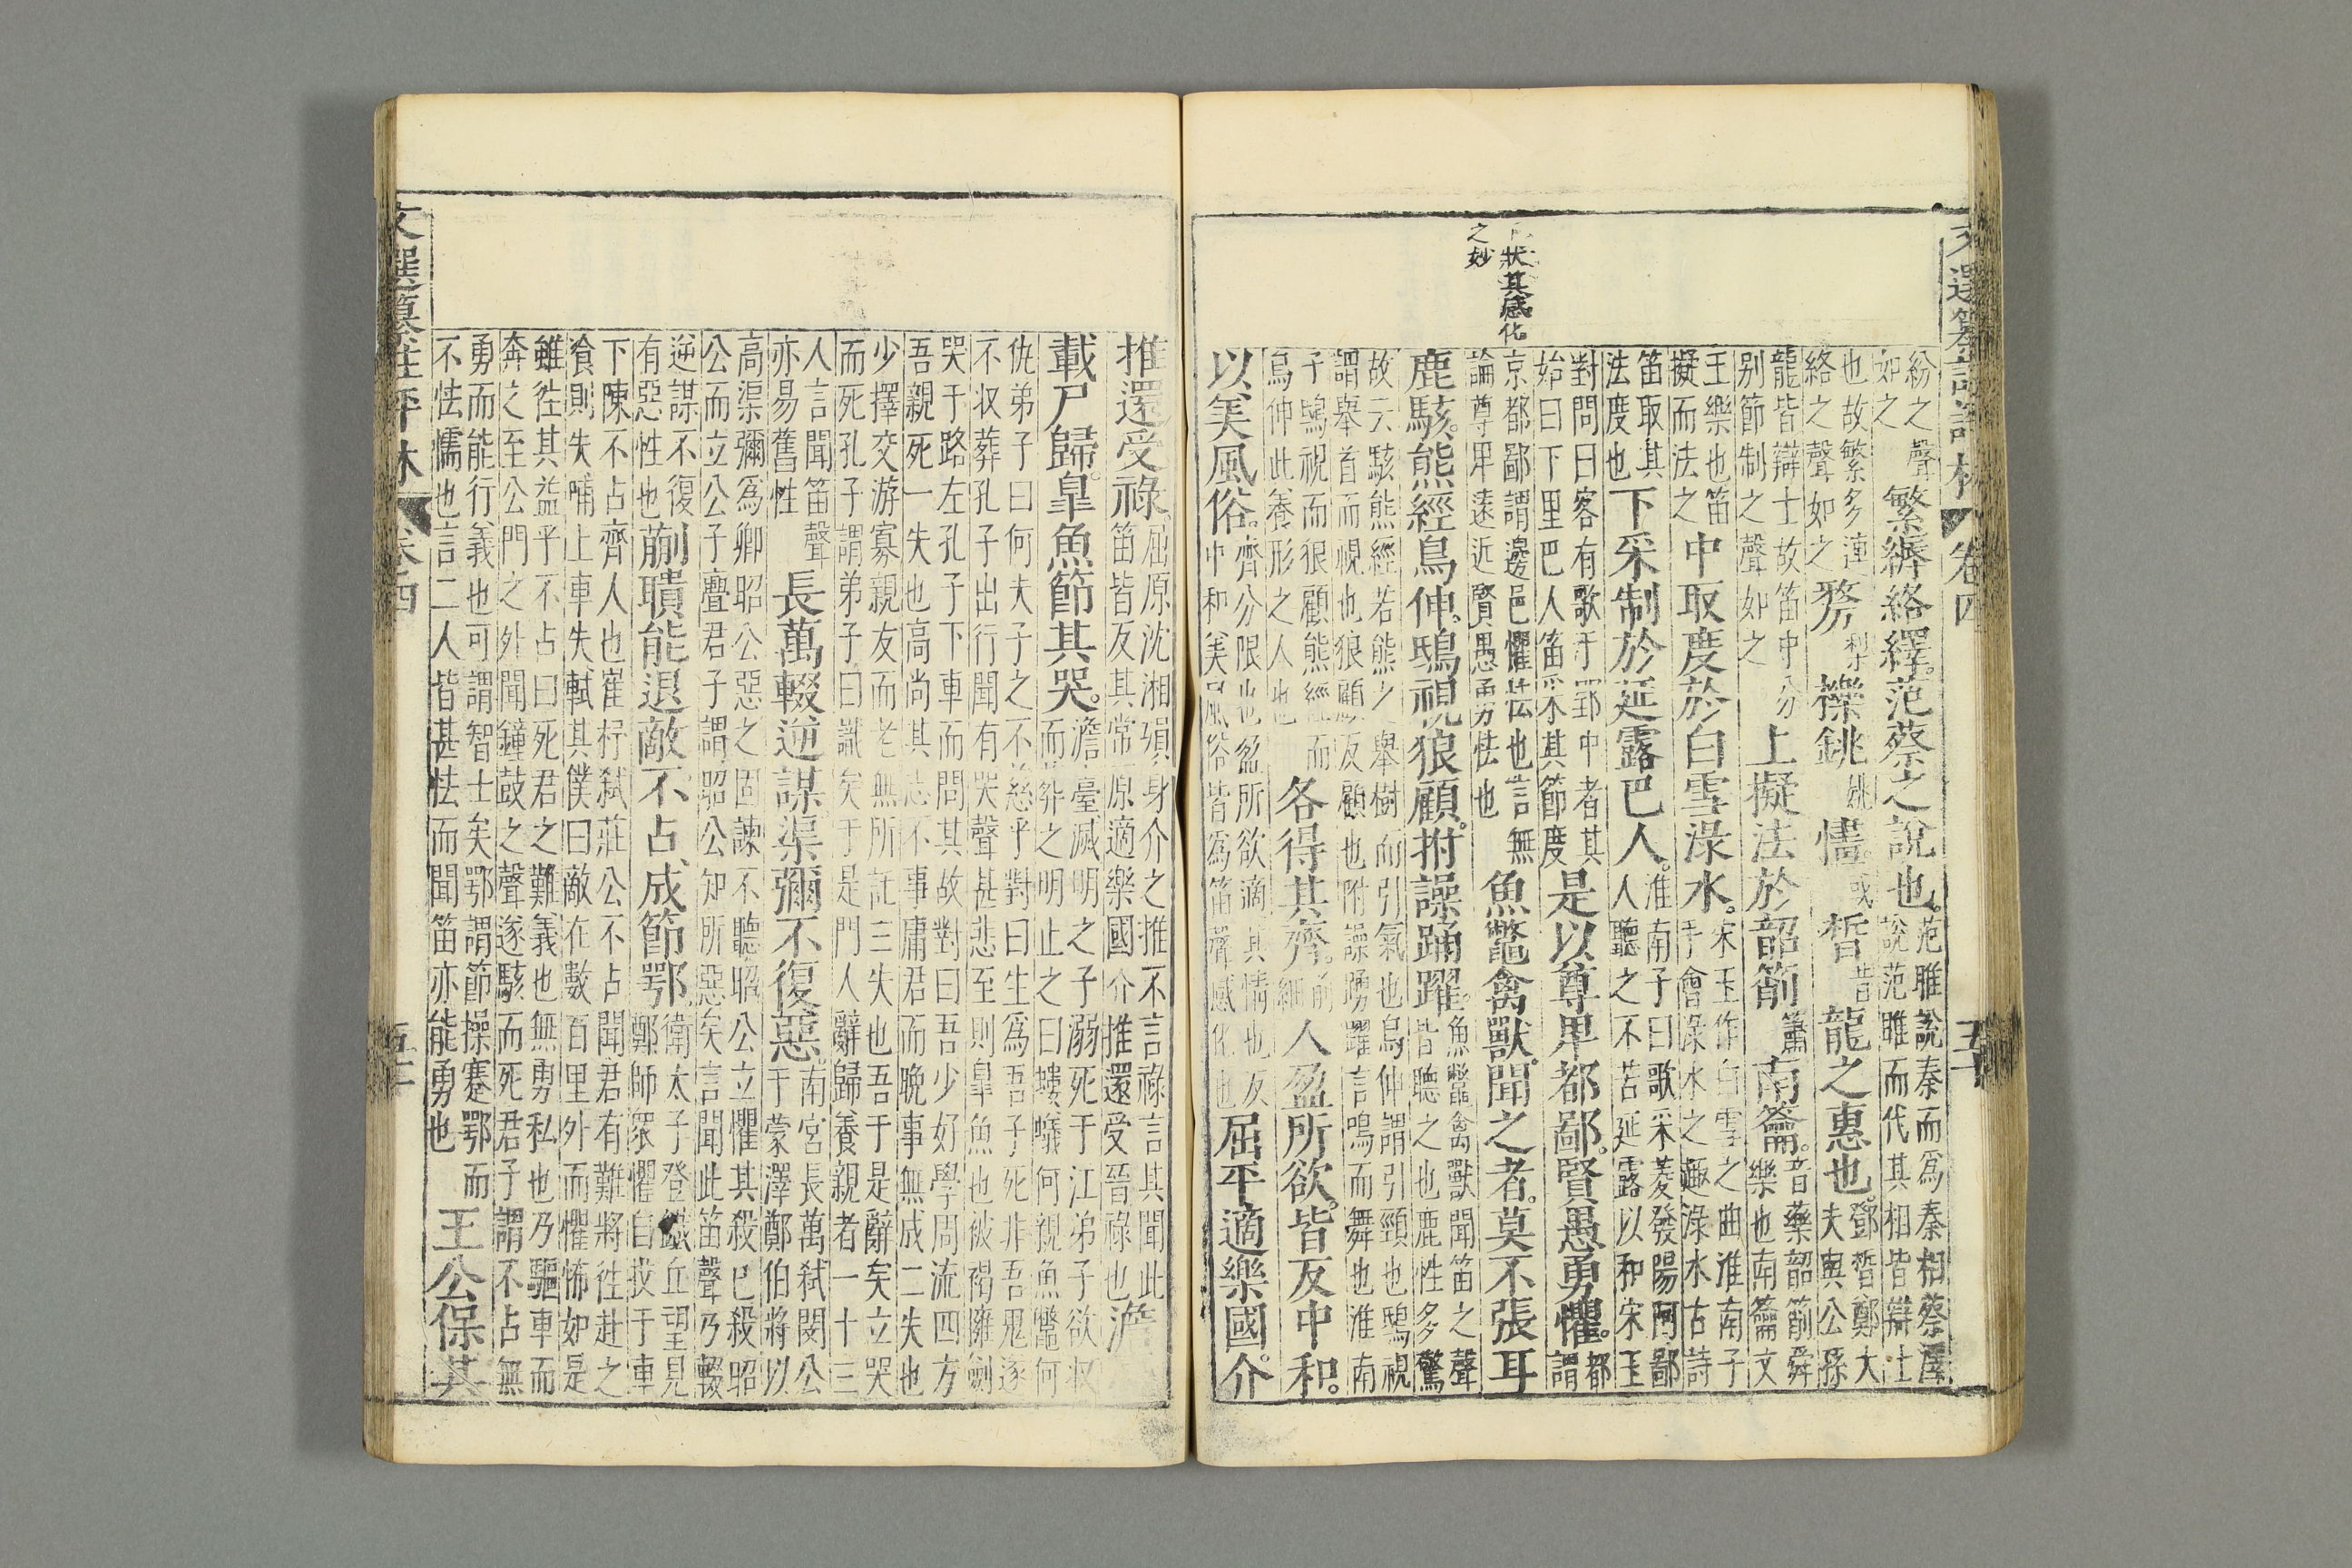 卷四
五十
狀其感化
之妙
紛之聲如之繁縟絡繹。范蔡之說也。范睢說秦而爲秦相蔡澤說范睢而代其相皆辯士
也故繁多連絡之聲如之剺梨櫟銚姚㦎。或晳昔龍之惠也。鄧晳鄭大夫與公孫
龍皆辯士故笛中分别節制之聲如之上擬法於韶箾簫南籥。音藥韶箾舜樂也南籥文
王樂也笛擬而法之中取度於白雪淥水。宋玉作白雪之曲淮南子手會淥水之趣淥水古詩
笛取其法度也下采制於延露巴人。淮南子曰歌采菱發陽阿鄙人聽之不若延露以和宋玉
對問曰客有歌于郢中者其始曰下里巴人笛采其節度是以尊卑都鄙。賢愚勇懼。都謂
京都鄙謂邊邑懼怯也言無論尊卑遠近賢愚勇怯也魚鼈禽獸。聞之者。莫不張耳
鹿駭。熊經鳥伸。鴟視狼顧。拊譟踊躍。魚鼈禽獸聞笛之聲皆聽之也鹿性多驚
故云駭熊經若熊之舉樹而引氣也鳥伸謂引頸也鴟視謂舉首而視也狼顧反顧也拊譟踴躍言鳴而舞也淮南
子鴟視而狼顧熊經而鳥仲此養形之人也各得其齊。人盈所欲。皆反中和。
以美風俗。齊分限也盈所欲適其情也反中和美風俗皆爲笛聲感化也屈平適樂國。介
推還受祿屈原沈湘殞身介之推不言祿言其聞此笛皆反其常原適樂國介推還受晉祿也澹
載尸歸。皐魚節其哭。澹臺滅明之子溺死于江弟子欲收而葬之明止之曰螻蟻何親魚鼈何
仇弟子曰何夫子之不慈乎對曰生爲吾子死非吾鬼遂不收葬孔子出行聞有哭聲甚悲至則皐魚也被褐擁劍
哭于路左孔子下車而問其故對曰吾少好學周流四方吾親死一失也高尚其志不事庸君而晚事無成二失也
少擇交游寡親友而老無所託三失也吾于是辭矣立哭而死孔子謂弟子曰識矣于是門人辭歸養親者一十三
人言聞笛聲亦易舊性長萬輟逆謀渠彌不復惡。南宮長萬弑閔公于蒙澤鄭伯將以
高渠彌爲卿昭公惡之固諫不聽昭公立懼其殺已殺昭公而立公子亹君子謂昭公知所惡矣言聞此笛聲乃輟
逆謀不復有惡性也蒯聵能退敵不占成節鄂。衛太子登鐵丘望見鄭師眾懼自投于車
下陳不占齊人也崔杼弑莊公不占聞君有難將往赴之飡則失哺上車失軾其僕曰敵在數百里外而懼怖如是
雖往其益乎不占曰死君之難義也無勇私也乃驅車而奔之至公門之外聞鐘鼓之聲遂駭而死君子謂不占無
勇而能行義也可謂智士矣鄂謂節操蹇鄂而不怯懦也言二人皆甚怯而聞笛亦能勇也王公保其